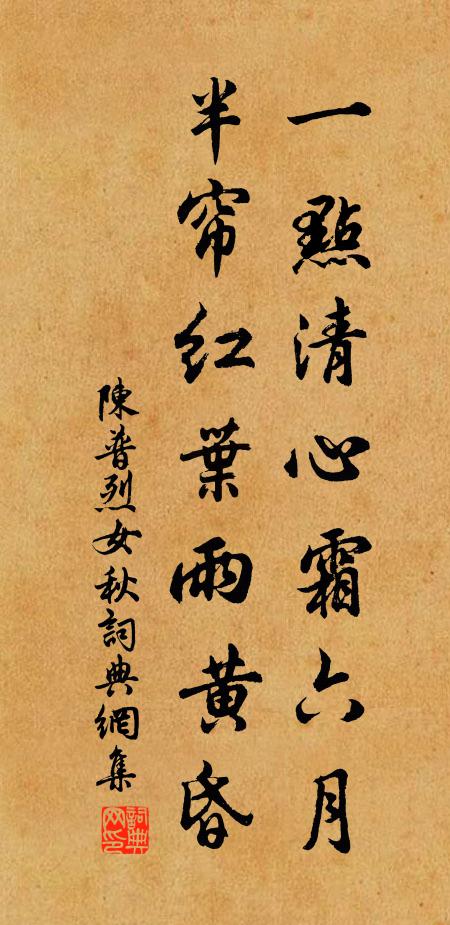 一點清心霜六月
半帘紅葉雨黄昏
陳普烈女秋詞典網集
詞典网印